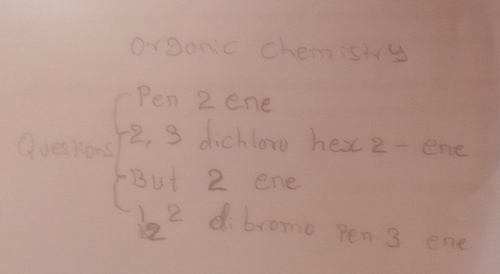 Organic chemistry
Pen 2 ene
Questions
2, 3 dichloro hex 2 - ene
But 2 ene
1, 2 dibromo pen 3 ene